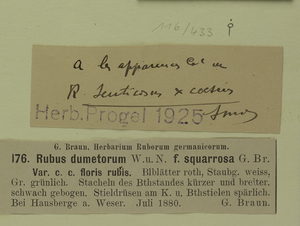 116/433
a les apparences de
R. Senticosus x caesius
Herb. Progel 1925
G. Braun, Herbarium Ruborum germanicorum.
176. Rubus dumetorum W. u. N. f. squarrosa G. Br.
Var. c. c. floris rubis. Blblätter roth, Staubg. weiss,
Gr. grünlich. Stacheln des Bthstandes kürzer und breiter,
schwach gebogen. Stieldrüsen am K. u. Bthstielen spärlich.
Bei Hausberge a. Weser. Juli 1880. G. Braun.